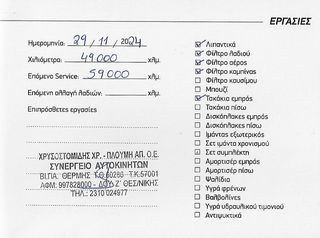 ΕΡΓΑΣΙΕΣ
Ημερομηνία: 29/11/2024
Χιλιόμετρα: 49.000 χλμ.
Επόμενο Service: 59.000 χλμ.
Επόμενη αλλαγή λαδιών: χλμ.
Επιπρόσθετες εργασίες
ΧΡΥΣΟΣΤΟΜΙΔΗΣ ΧΡ. - ΠΛΟΥΜΗ ΑΠ. Ο.Ε.
ΣΥΝΕΡΓΕΙΟ ΑΥΤΟΚΙΝΗΤΩΝ
ΒΙ.ΠΑ. ΘΕΡΜΗΣ Τ.Θ. 60280 - Τ.Κ. 57001
ΑΦΜ: 997828000 - ΔΟΥ Ζ' ΘΕΣ/ΝΙΚΗΣ
ΤΗΛ.: 2310 024977
Λιπαντικά
Φίλτρο λαδιού
Φίλτρο αέρος
Φίλτρο καμπίνας
Φίλτρο καυσίμου
Μπουζί
Τακάκια εμπρός
Τακάκια πίσω
Δισκόπλακες εμπρός
Δισκόπλακες πίσω
Ιμάντας εξωτερικός
Σετ ιμάντα χρονισμού
Σετ συμπλέκτη
Αμορτισέρ εμπρός
Αμορτισέρ πίσω
Ψαλίδια
Υγρά φρένων
Βαλβολίνες
Υγρό υδραυλικού τιμονιού
Αντιψυκτικά